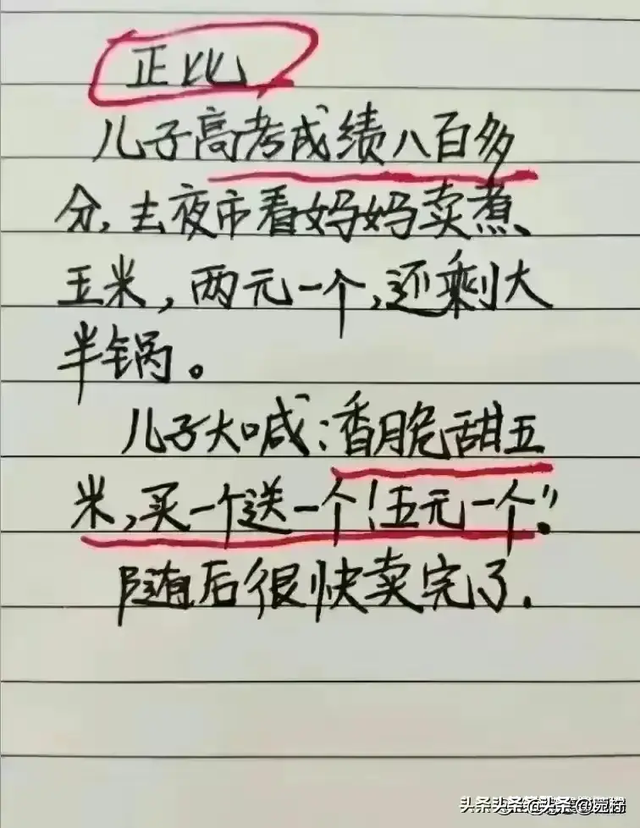 正比
儿子高考成绩八百多
分，去夜市看妈妈卖煮
玉米，两元一个，还剩大
半锅。
儿子大喊：香脆甜玉
米，买一个送一个！五元一个！
随后很快卖完了．